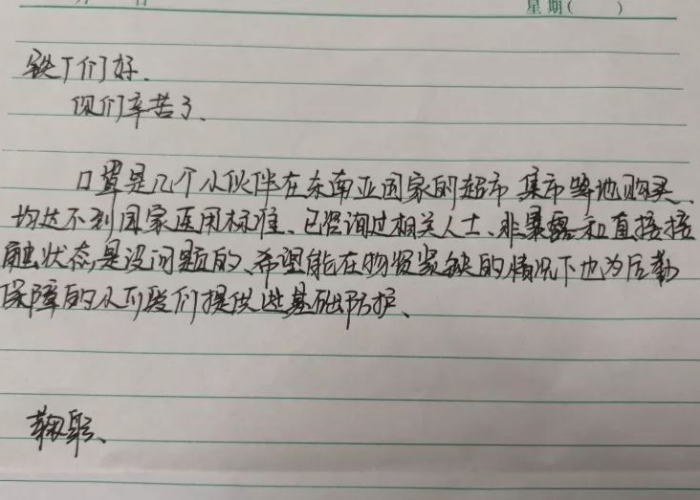 星期( )
铁丁们好.
你们辛苦了.
口罩是几个小伙伴在东南亚国家的超市 集市等地购买.
均达不到国家医用标准、已咨询过相关人士、非暴露和直接接
触状态,是没问题的、希望能在物资紧缺的情况下也为后勤
保障的小可爱们提供进基础防护、
鞠躬、